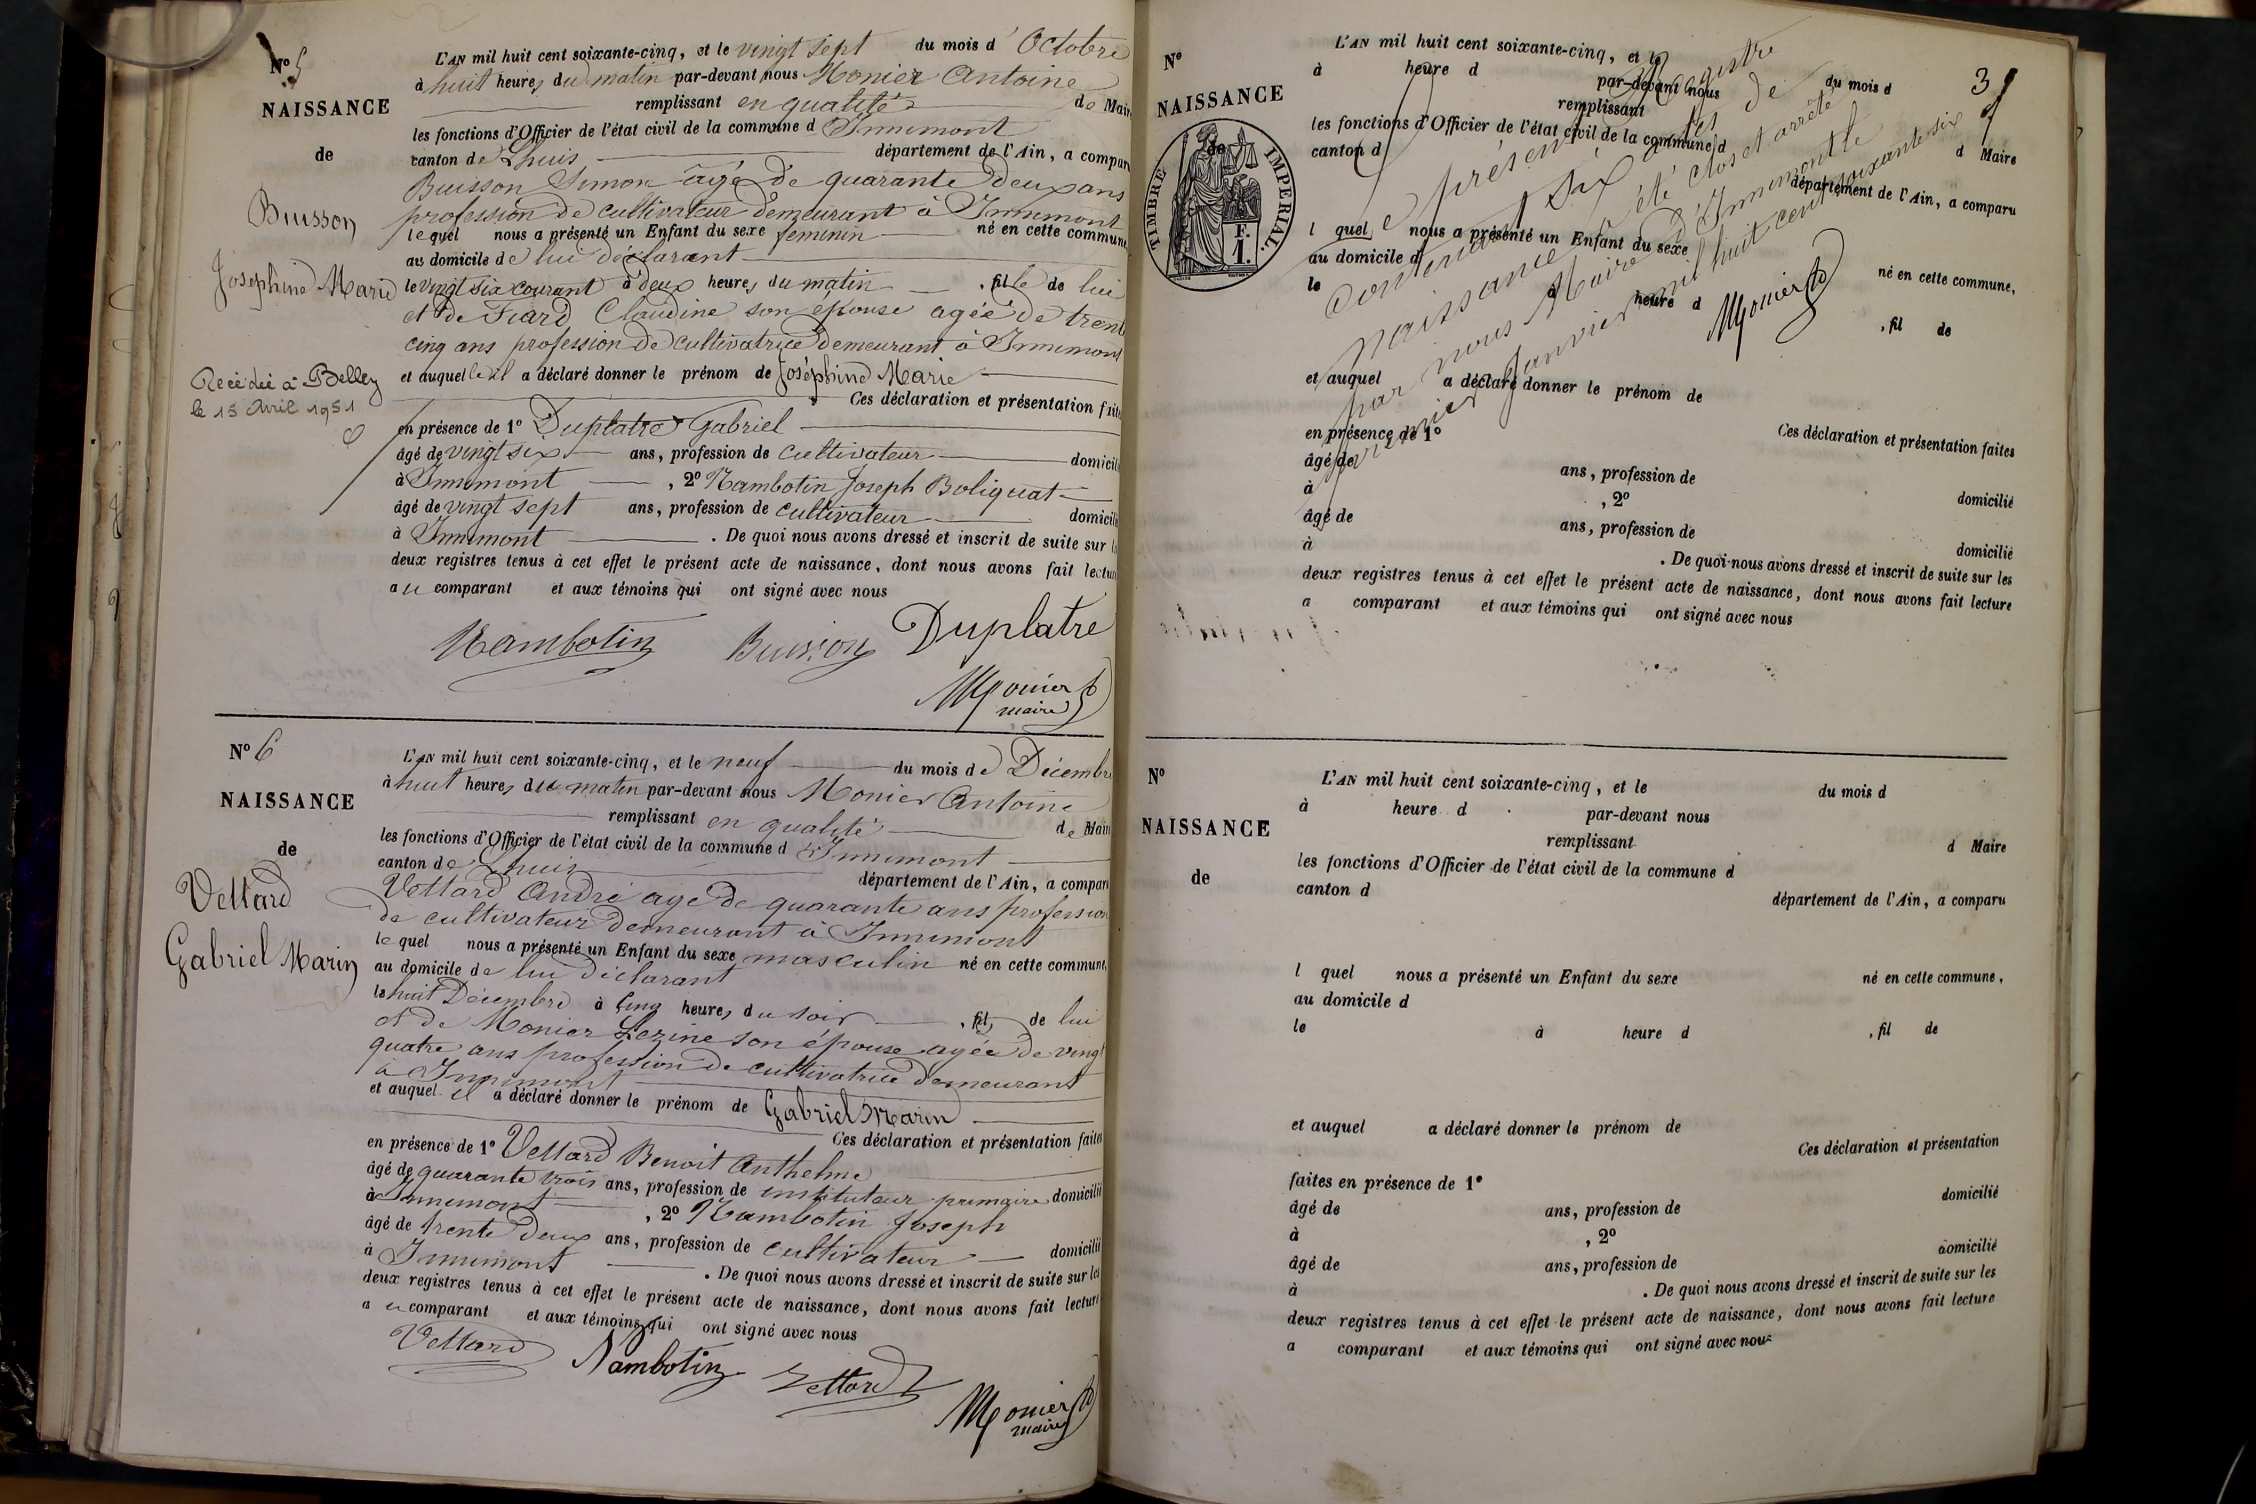 N° 5
NAISSANCE
de
Buisson
Joséphine Marie
Décédée à Belley
le 15 Avril 1951
L'AN mil huit cent soixante-cinq, et le vingt sept du mois d'Octobre
à huit heures du matin par-devant nous Monier Antoine
remplissant en qualité de Maire
les fonctions d'Officier de l'état civil de la commune d'Innimont
canton de Lhuis département de l'Ain, a comparu
Buisson Simon âgé de quarante deux ans
profession de cultivateur demeurant à Innimont
lequel nous a présenté un Enfant du sexe féminin né en cette commune
au domicile de lui déclarant
le vingt six courant à deux heures du matin, fille de lui
et de Fiard Claudine son épouse agée de trente
cinq ans profession de cultivatrice demeurant à Innimont
et auquel il a déclaré donner le prénom de Joséphine Marie
Ces déclaration et présentation faites
en présence de 1° Duplatre Gabriel
âgé de vingt six ans, profession de cultivateur domicilié
à Innimont, 2° Nambotin Joseph Boliquat
âgé de vingt sept ans, profession de cultivateur domicilié
à Innimont. De quoi nous avons dressé et inscrit de suite sur les
deux registres tenus à cet effet le présent acte de naissance, dont nous avons fait lecture
au comparant et aux témoins qui ont signé avec nous
Nambotin Buisson Duplatre
Monier
maire
N° 6
NAISSANCE
de
Vettard
Gabriel Marin
L'AN mil huit cent soixante-cinq, et le neuf du mois de Décembre
à huit heures du matin par-devant nous Monier Antoine
remplissant en qualité de Maire
les fonctions d'Officier de l'état civil de la commune d'Innimont
canton de Lhuis département de l'Ain, a comparu
Vettard André agé de quarante ans profession
de cultivateur demeurant à Innimont
lequel nous a présenté un Enfant du sexe masculin né en cette commune,
au domicile de lui déclarant
le huit Décembre à cinq heures du soir, fils de lui
et de Monier Lezine son épouse agée de vingt
quatre ans profession de cultivatrice demeurant
à Innimont
et auquel il a déclaré donner le prénom de Gabriel Marin
Ces déclaration et présentation faites
en présence de 1° Vettard Benoit Anthelme
âgé de quarante trois ans, profession de instituteur primaire domicilié
à Innimont, 2° Nambotin Joseph
âgé de trente deux ans, profession de cultivateur domicilié
à Innimont. De quoi nous avons dressé et inscrit de suite sur les
deux registres tenus à cet effet le présent acte de naissance, dont nous avons fait lecture
au comparant et aux témoins qui ont signé avec nous
Vettard Nambotin Vettard
Monier
maire
3
N°
NAISSANCE
de
TIMBRE IMPERIAL.
F.
1.
L'AN mil huit cent soixante-cinq, et le du mois d
à heure d par-devant nous
remplissant d Maire
les fonctions d'Officier de l'état civil de la commune d
canton d département de l'Ain, a comparu
l quel nous a présenté un Enfant du sexe né en cette commune,
au domicile d
le à heure d, fil de
et auquel a déclaré donner le prénom de
Ces déclaration et présentation faites
en présence de 1°
âgé de ans, profession de domicilié
à, 2°
âgé de ans, profession de domicilié
à. De quoi nous avons dressé et inscrit de suite sur les
deux registres tenus à cet effet le présent acte de naissance, dont nous avons fait lecture
a comparant et aux témoins qui ont signé avec nous
Le présent Registre
contenant six actes de
naissance a été clos et arrêté
par nous Maire d'Innimont le
premier Janvier mil huit cent soixante six
Monier
N°
NAISSANCE
de
L'AN mil huit cent soixante-cinq, et le du mois d
à heure d par-devant nous
remplissant d Maire
les fonctions d'Officier de l'état civil de la commune d
canton d département de l'Ain, a comparu
l quel nous a présenté un Enfant du sexe né en cette commune,
au domicile d
le à heure d, fil de
et auquel a déclaré donner le prénom de
Ces déclaration et présentation
faites en présence de 1°
âgé de ans, profession de domicilié
à, 2°
âgé de ans, profession de domicilié
à. De quoi nous avons dressé et inscrit de suite sur les
deux registres tenus à cet effet le présent acte de naissance, dont nous avons fait lecture
a comparant et aux témoins qui ont signé avec nous